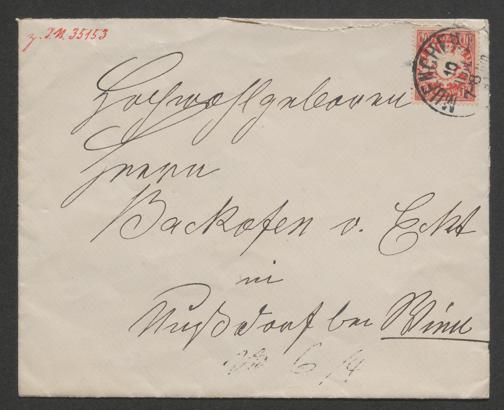 z. I.N. 35153
MUENCHEN
Hochwohlgeboren
Herrn
Backofen v. Eckt
in
Nußdorf bei Wien
6/4